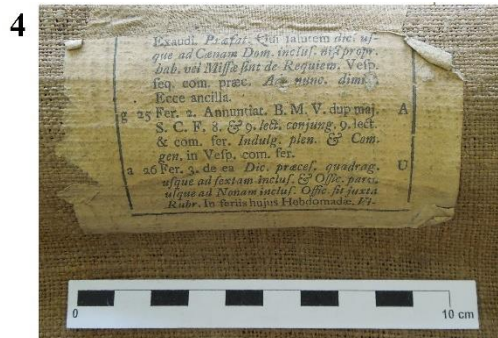 4
Exaudi. Præfat. Qui salutem dici us-
que ad Cænam Dom. inclus. nisi propr.
hab. vel Missæ sint de Requiem. Vesp.
seq. com. præc. Ad nunc. dimit.
Ecce ancilla.
g 25 Fer. 2. Annuntiat. B. M. V. dup maj. A
S. C. F. 8. & 9. lect. conjung. 9. lect.
& com. fer. Indulg. plen. & Com.
gen. in Vesp. com. fer.
a 26 Fer. 3. de ea Dic. præces. quadrag. U
usque ad sextam inclus. & Offic. parv.
usque ad Nonam inclus. Offic. fit juxta
Rubr. In feriis hujus Hebdomadæ.
0 10 cm